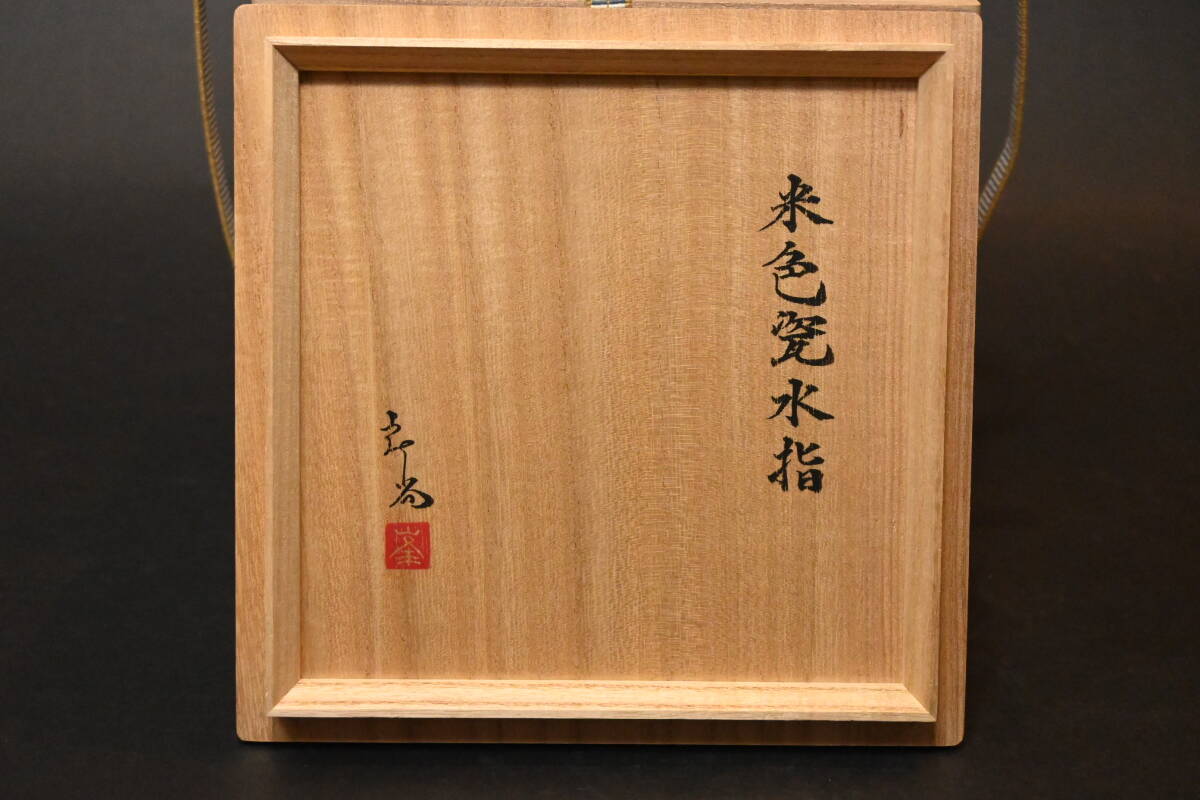 米色瓷水指